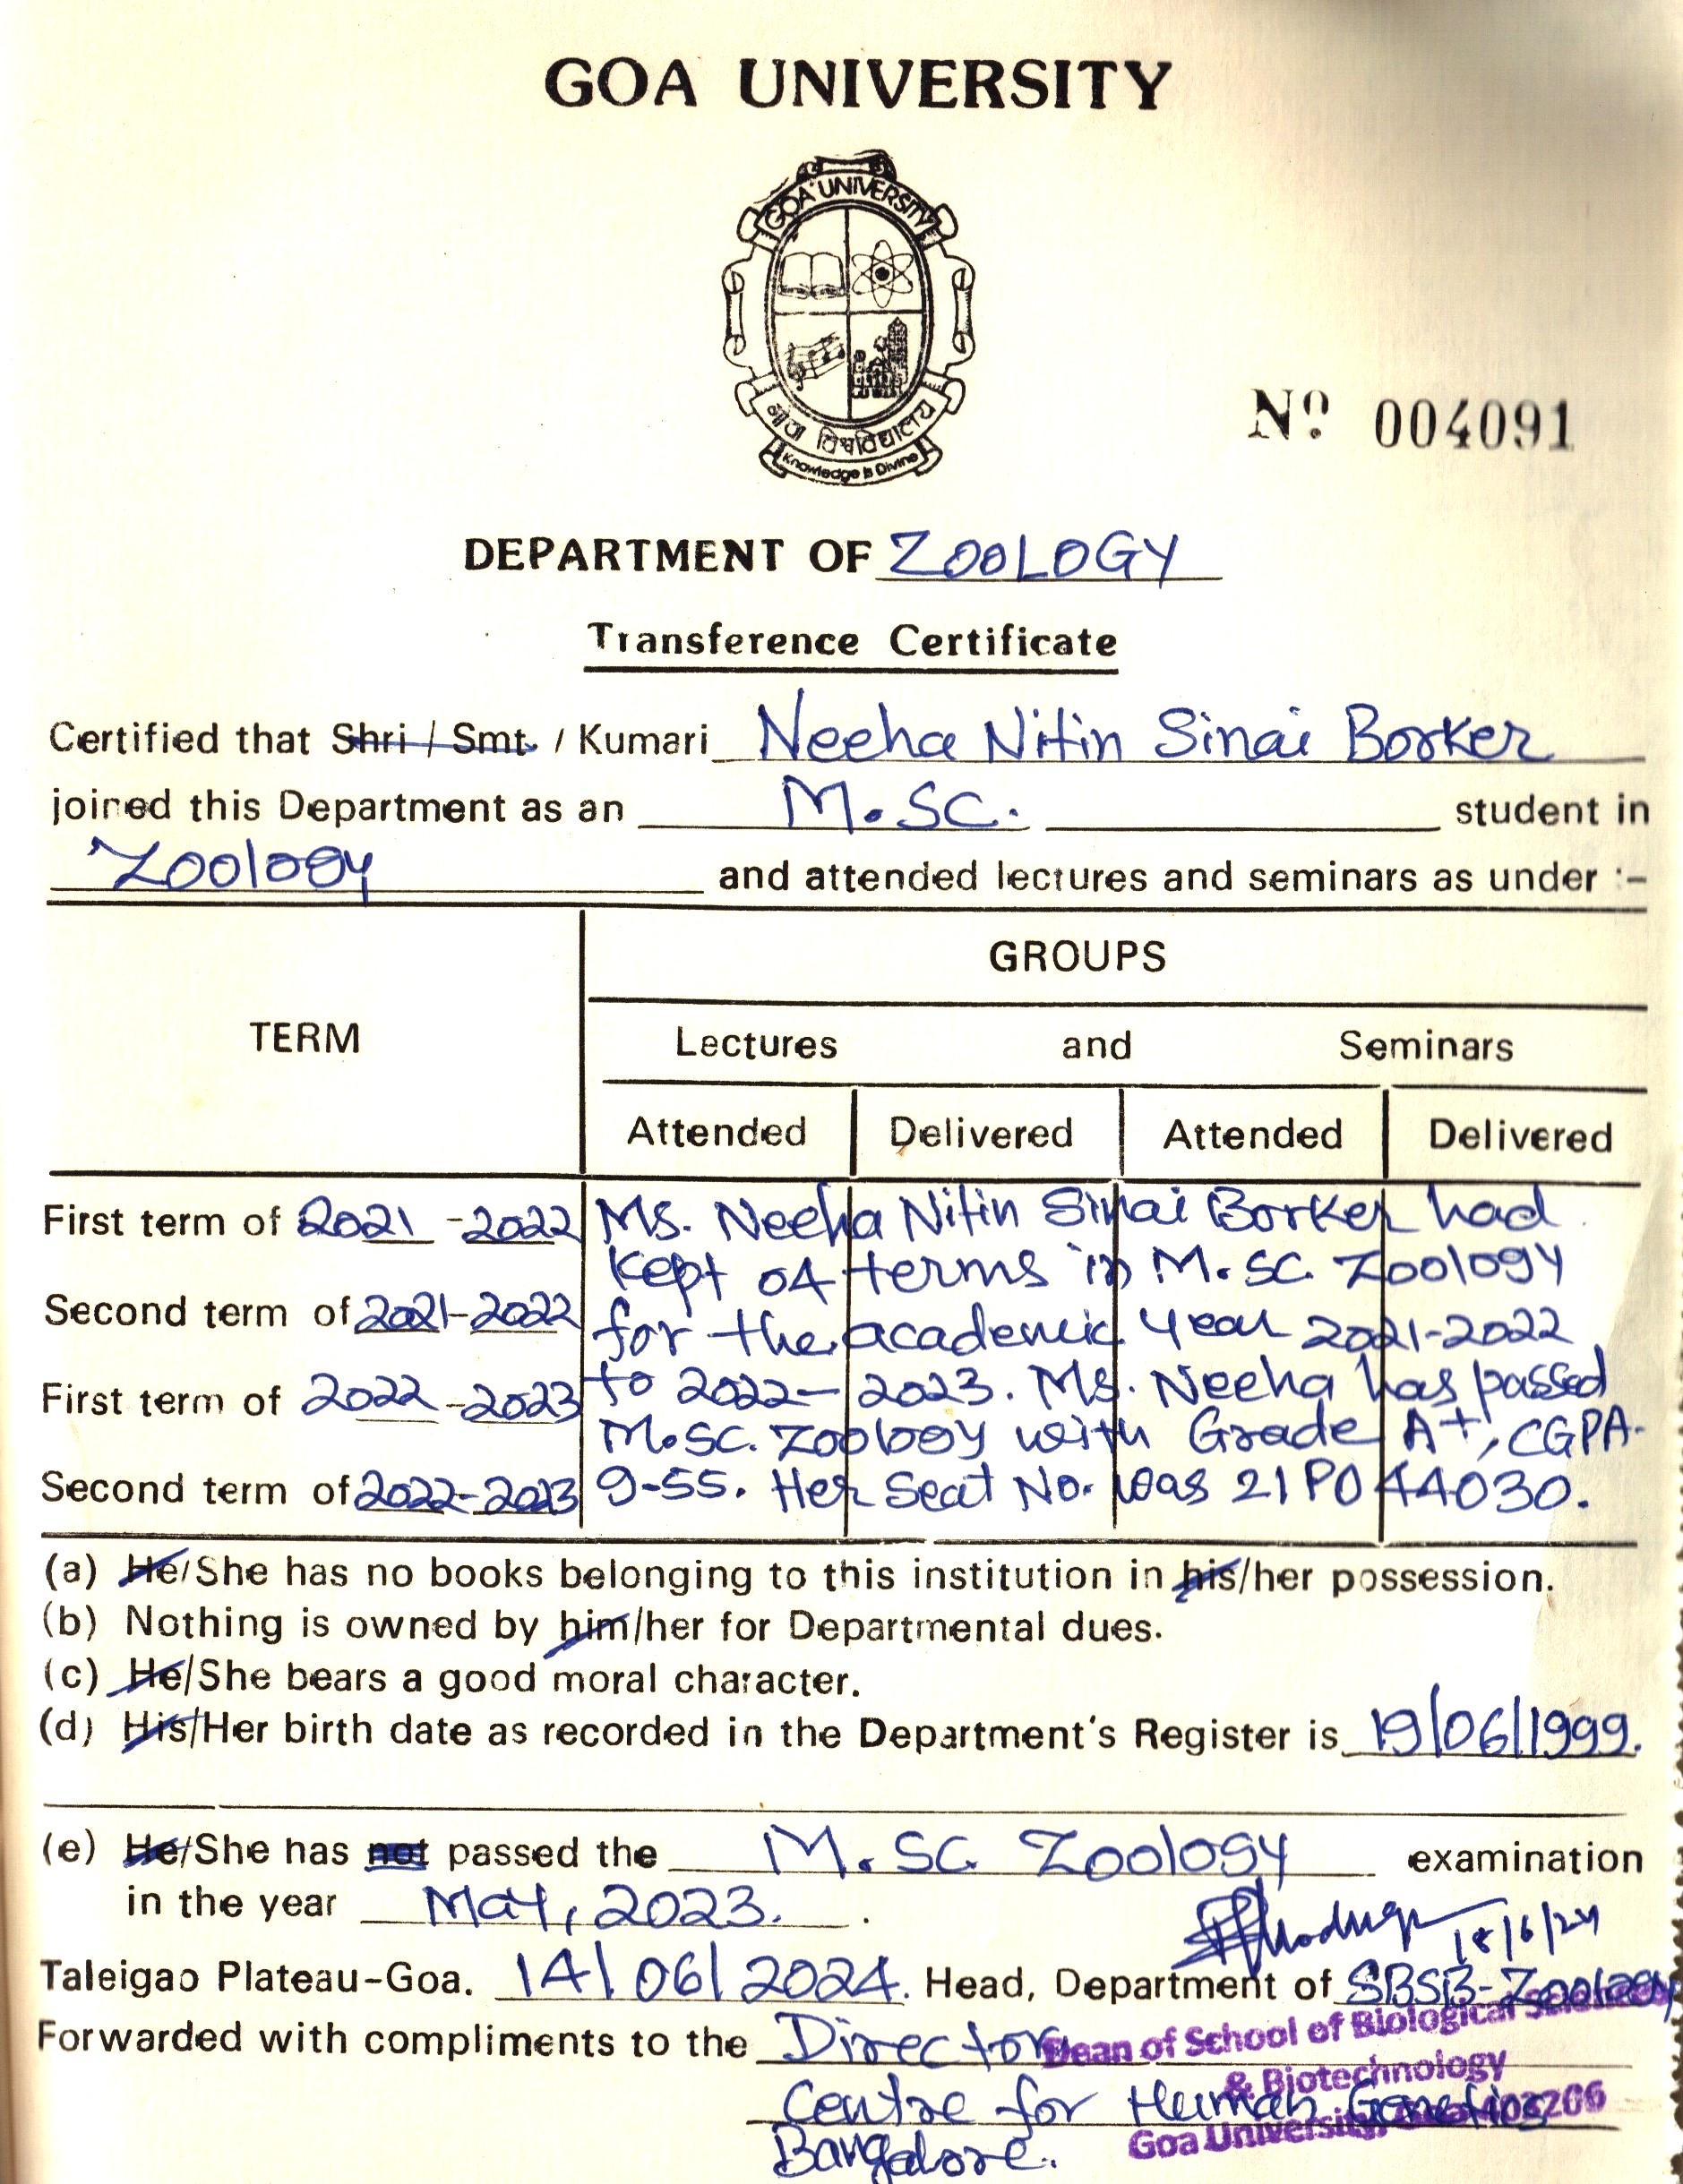 GOA UNIVERSITY
GOA UNIVERSITY
गोंय विश्वविद्यालय
Knowledge is Divine
Nº 004091
DEPARTMENT OF ZOOLOGY
Transference Certificate
Certified that Shri / Smt. / Kumari Neeha Nitin Sinai Borker
joined this Department as an M.SC. student in
Zoology and attended lectures and seminars as under :-
GROUPS
TERM
Lectures and Seminars
Attended Delivered Attended Delivered
First term of 2021 - 2022 Ms. Neeha Nitin Sinai Borker had
kept 04 terms in M.SC. Zoology
Second term of 2021-2022 for the academic year 2021-2022
First term of 2022 - 2023 to 2022-2023. Ms. Neeha has passed
M.SC. Zoology with Grade A+, CGPA-
Second term of 2022-2023 9-55. Her Seat No. was 21P044030.
(a) He/She has no books belonging to this institution in his/her possession.
(b) Nothing is owned by him/her for Departmental dues.
(c) He/She bears a good moral character.
(d) His/Her birth date as recorded in the Department's Register is 19/06/1999.
(e) He/She has not passed the M.SC. Zoology examination
in the year May, 2023.
18/6/24
Taleigao Plateau-Goa. 14/06/2024. Head, Department of SBSB-Zoology
Forwarded with compliments to the Director
Dean of School of Biological Sciences
& Biotechnology
Centre for Human Genetics
Goa University, Goa 403206
Bangalore.